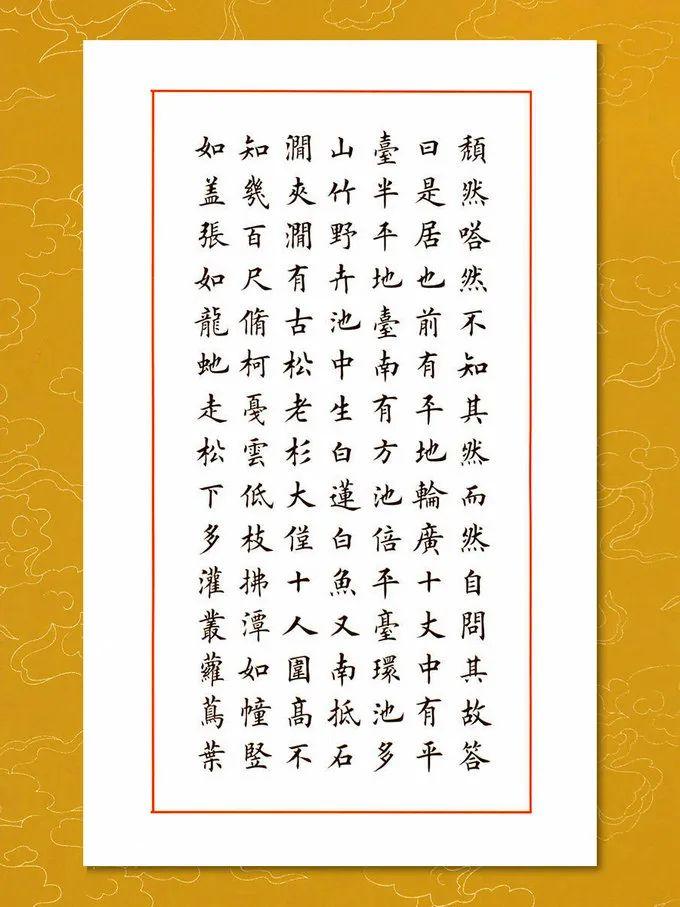 頽然嗒然不知其然而然自問其故答
曰是居也前有平地輪廣十丈中有平
臺半平地臺南有方池倍平臺環池多
山竹野卉池中生白蓮白魚又南抵石
澗夾澗有古松老杉大僅十人圍高不
知幾百尺脩柯戛雲低枝拂潭如幢竪
如盖張如龍虵走松下多灌叢蘿蔦葉